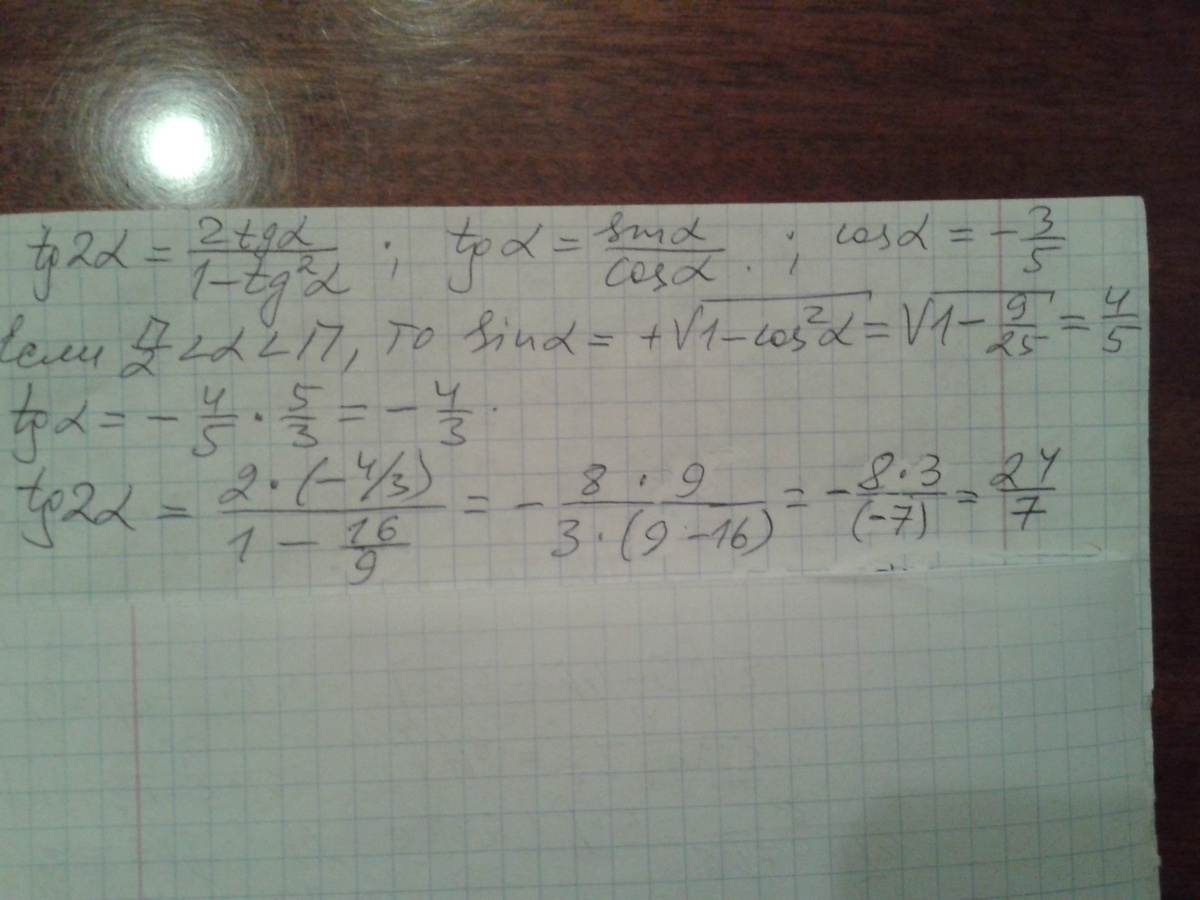 tg2α = 2tgα / 1-tg²α ; tgα = sinα / cosα . ; cosα = - 3/5
Если П/2 < α < П, то sinα = +√1-cos²α = √1 - 9/25 = 4/5
tgα = - 4/5 · 5/3 = - 4/3 .
tg2α = 2·(-4/3) / 1 - 16/9 = - 8 · 9 / 3·(9-16) = - 8·3 / (-7) = 24/7